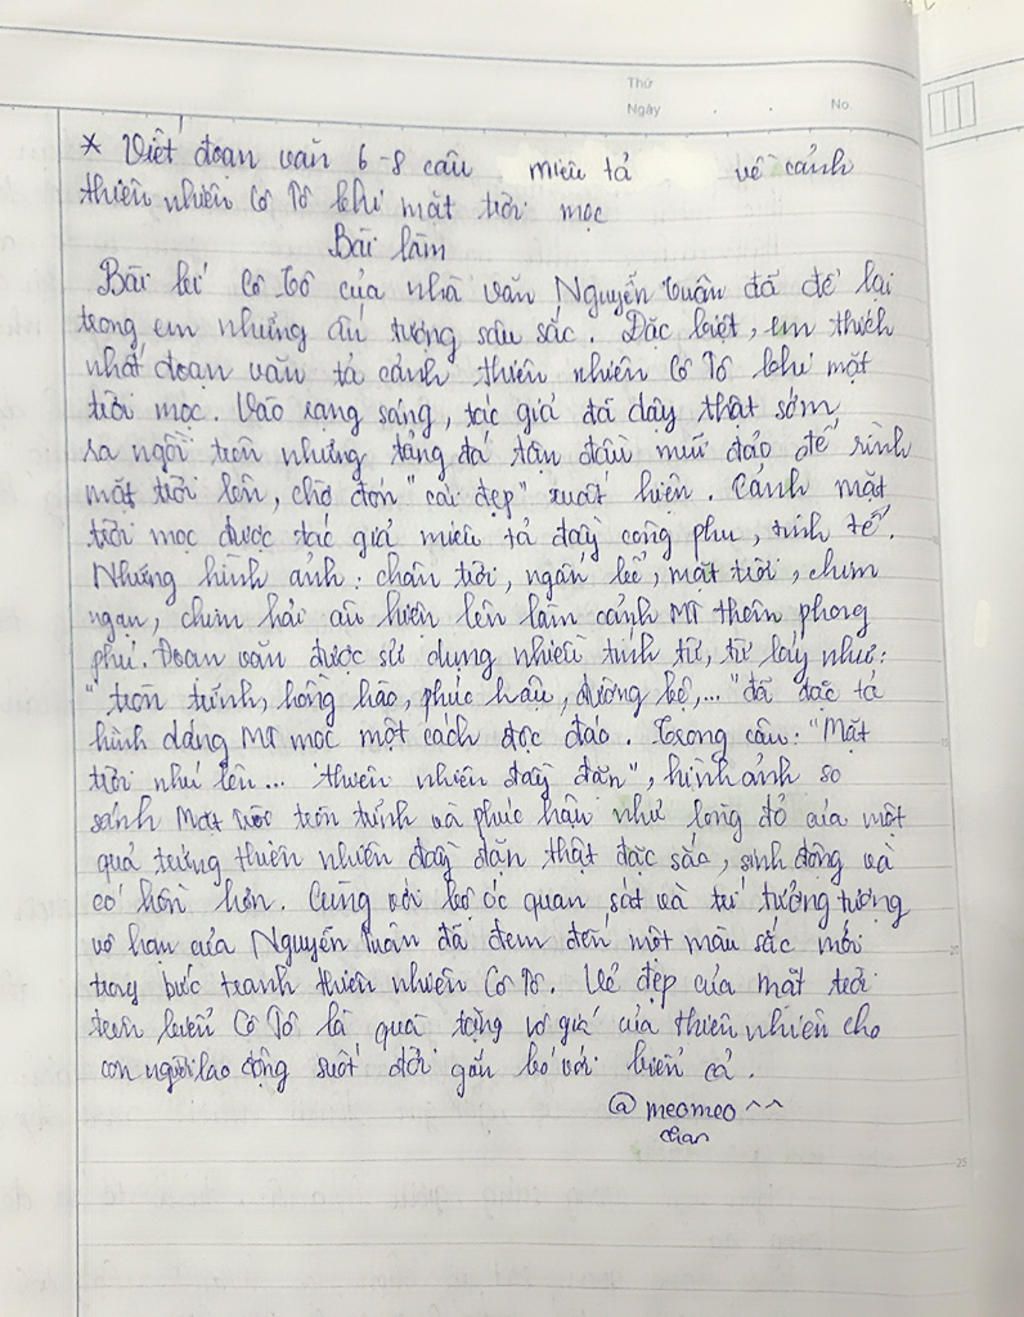 Thứ
Ngày . . No.
* Viết đoạn văn 6-8 câu miêu tả về cảnh
thiên nhiên Cô Tô khi mặt trời mọc
Bài làm
Bài kí Cô Tô của nhà văn Nguyễn Tuân đã để lại
trong em những ấn tượng sâu sắc. Đặc biệt, em thích
nhất đoạn văn tả cảnh thiên nhiên Cô Tô khi mặt
trời mọc. Vào rạng sáng, tác giả đã dậy thật sớm,
ra ngồi trên những tảng đá tận đầu mũi đảo để rình
mặt trời lên, chờ đón "cái đẹp" xuất hiện. Cảnh mặt
trời mọc được tác giả miêu tả đầy công phu, tinh tế.
Những hình ảnh: chân trời, ngấn bể, mặt trời, chim
nhạn, chim hải âu hiện lên làm cảnh MT thêm phong
phú. Đoạn văn được sử dụng nhiều tính từ, từ láy như:
"tròn trĩnh, hồng hào, phúc hậu, đường bệ,..." đã đặc tả
hình dáng MT mọc một cách độc đáo. Trong câu: "Mặt
trời nhú lên... thiên nhiên đầy đặn", hình ảnh so
sánh Mặt trời tròn trĩnh và phúc hậu như lòng đỏ của một
quả trứng thiên nhiên đầy đặn thật đặc sắc, sinh động và
có hồn hơn. Cùng với bộ óc quan sát và trí tưởng tượng
vô hạn của Nguyễn Tuân đã đem đến một màu sắc mới
trong bức tranh thiên nhiên Cô Tô. Vẻ đẹp của mặt trời
trên biển Cô Tô là quà tặng vô giá của thiên nhiên cho
con người lao động suốt đời gắn bó với biển cả.
@meomeo ^^
chan
25